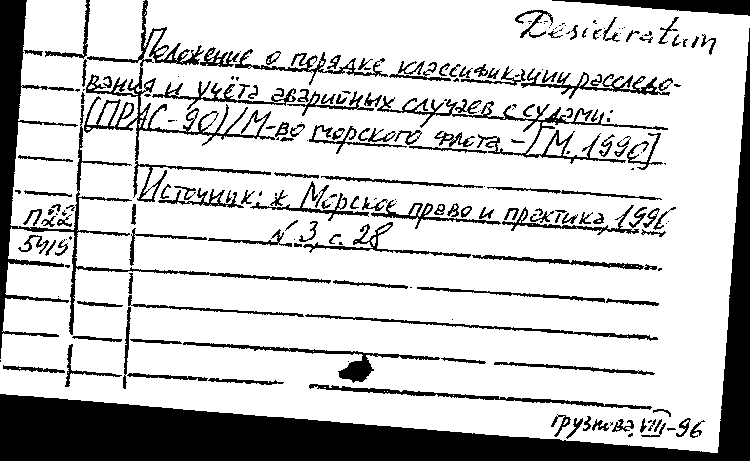 Desideratum
Положение о порядке классификации, расследо-
вания и учёта аварийных случаев с судами:
(ПРАС-90)/М-во морского флота.-[М., 1990]
Источник: ж. Морское право и практика, 1996,
N 3, с. 28
П22
5419
Грузнова, VIII-96